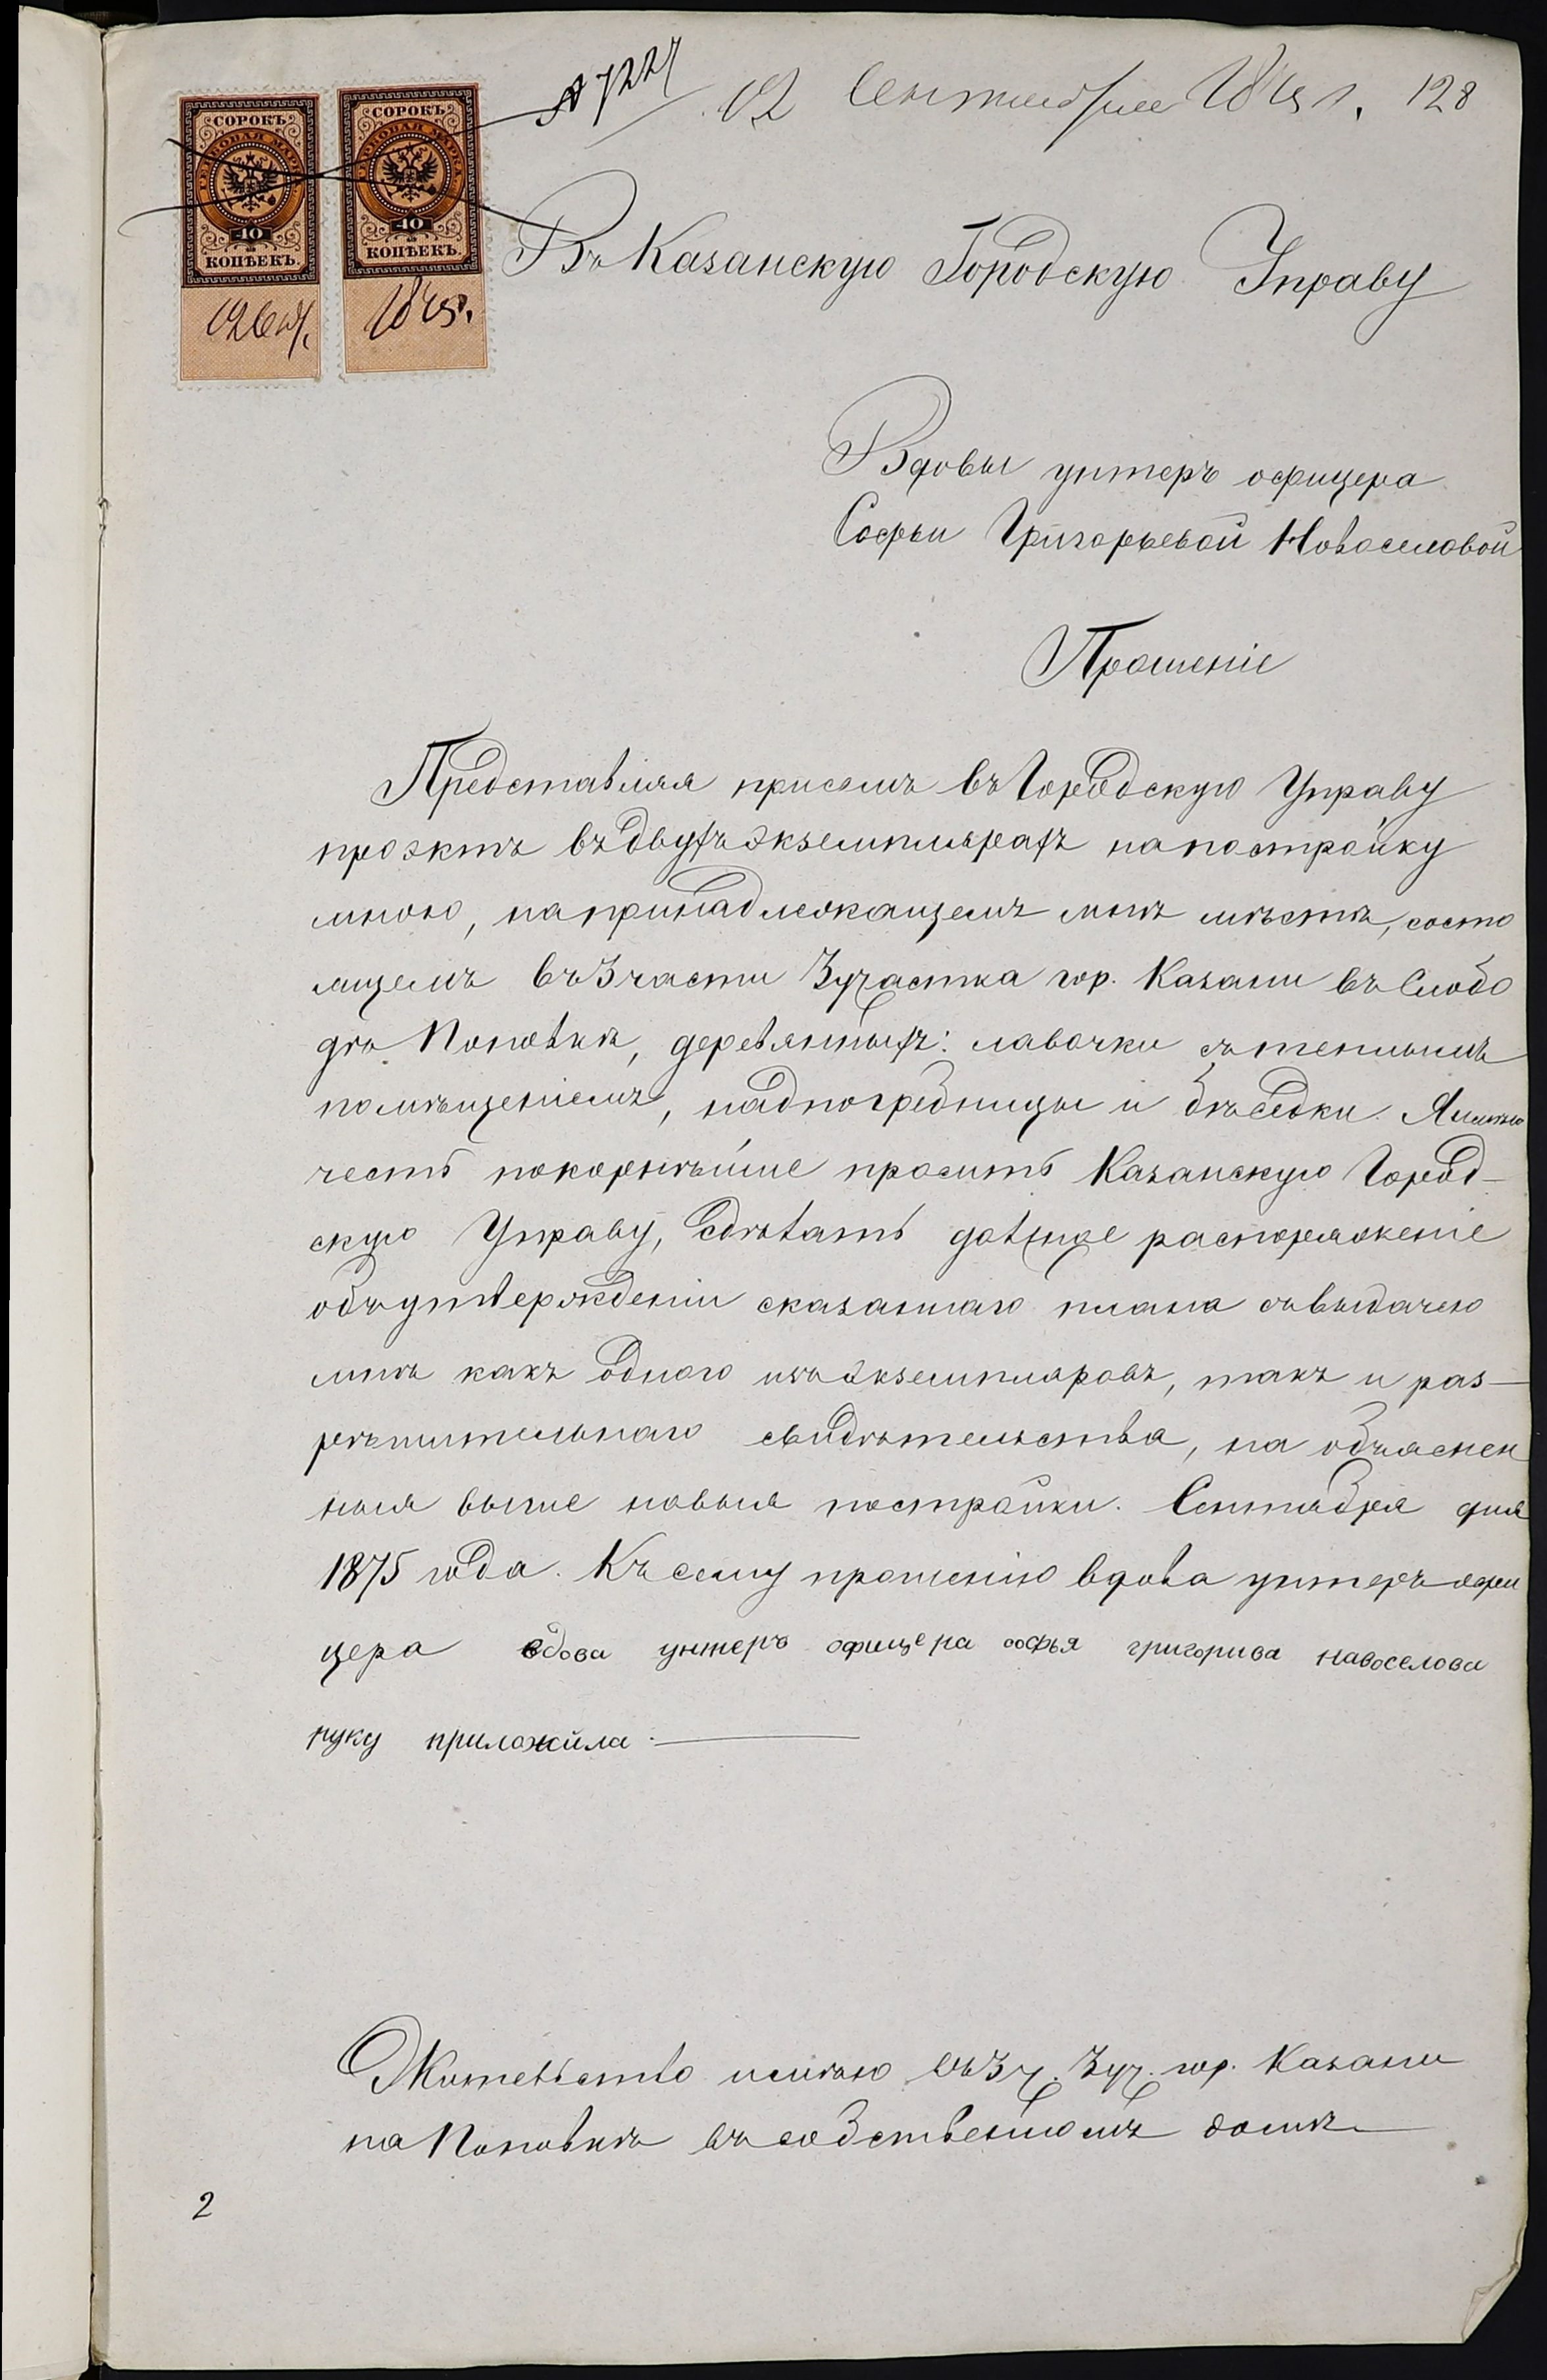 № 7227 12 Сентября 1875 г. 128
СОРОКЪ СОРОКЪ
ГЕРБОВАЯ МАРКА ГЕРБОВАЯ МАРКА
40 40
КОПѢЕКЪ. КОПѢЕКЪ.
1875.
Въ Казанскую Городскую Управу
Вдовы унтеръ офицера
Софьи Григорьевой Новоселовой
Прошеніе
Представляя присемъ въ Городскую Управу
проэктъ въ двухъ экземплярахъ на постройку
мною, на принадлежащемъ мнѣ мѣстѣ, состо
ящемъ въ 3 части 3 участка гор. Казани въ Слобо
дѣ Поповкѣ, деревянныхъ: лавочки съ теплымъ
помѣщеніемъ, надпогребницы и бесѣдки. Я имѣю
честь покорнѣйше просить Казанскую Город-
скую Управу, сдѣлать должное распоряженіе
объ утвержденіи сказаннаго плана съ выдачею
мнѣ какъ одного изъ экземпляровъ, такъ и раз-
рѣшительнаго свидѣтельства, на объяснен
ныя выше новыя постройки. Сентября дня
1875 года. Къ сему прошенію вдова унтеръ офи
цера вдова унтеръ офицера софья григорива навоселова
руку приложила.
Жительство имѣю въ 3 ч. 3 уч. гор. Казани
на Поповкѣ въ собственномъ домѣ
2